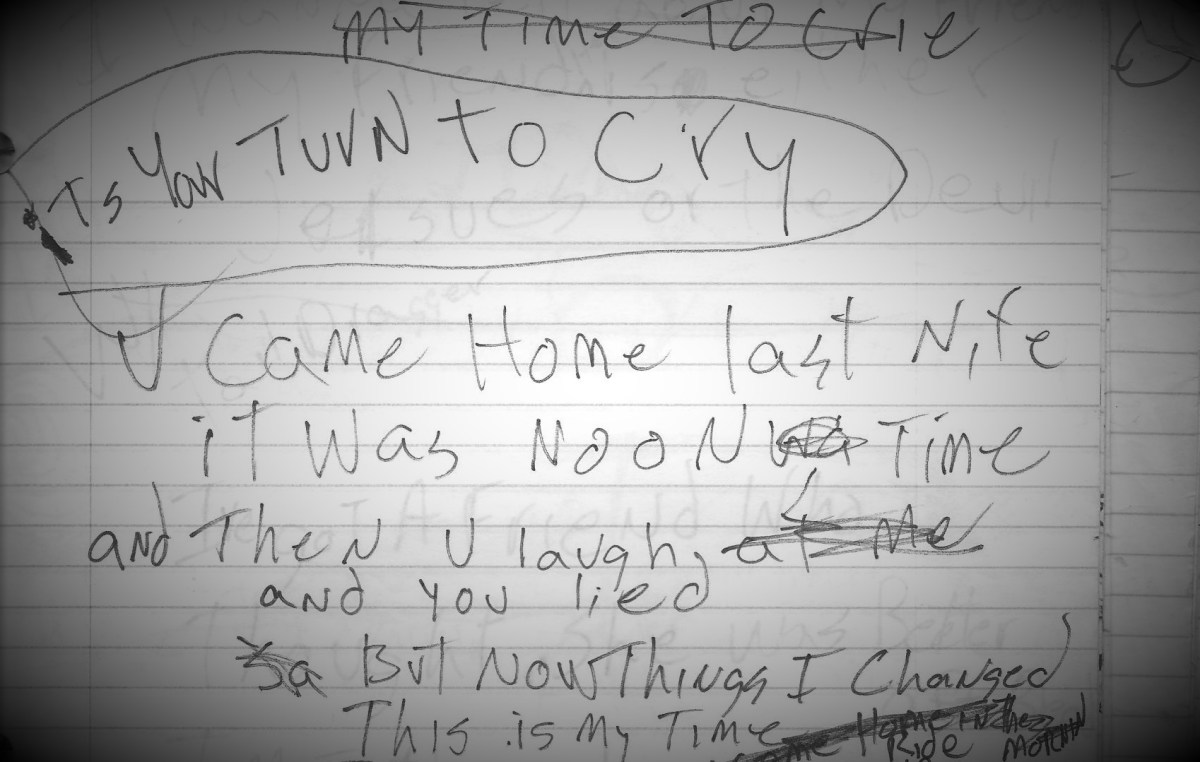 My Time To Crie
Is Your TurN to Cry
U Came Home last Nite
iT Was NooN Time
aNd TheN U laugh, at Me
aNd you lied
BuT Now ThiNgs I ChaNged
This is My Time Home iN The
Ride